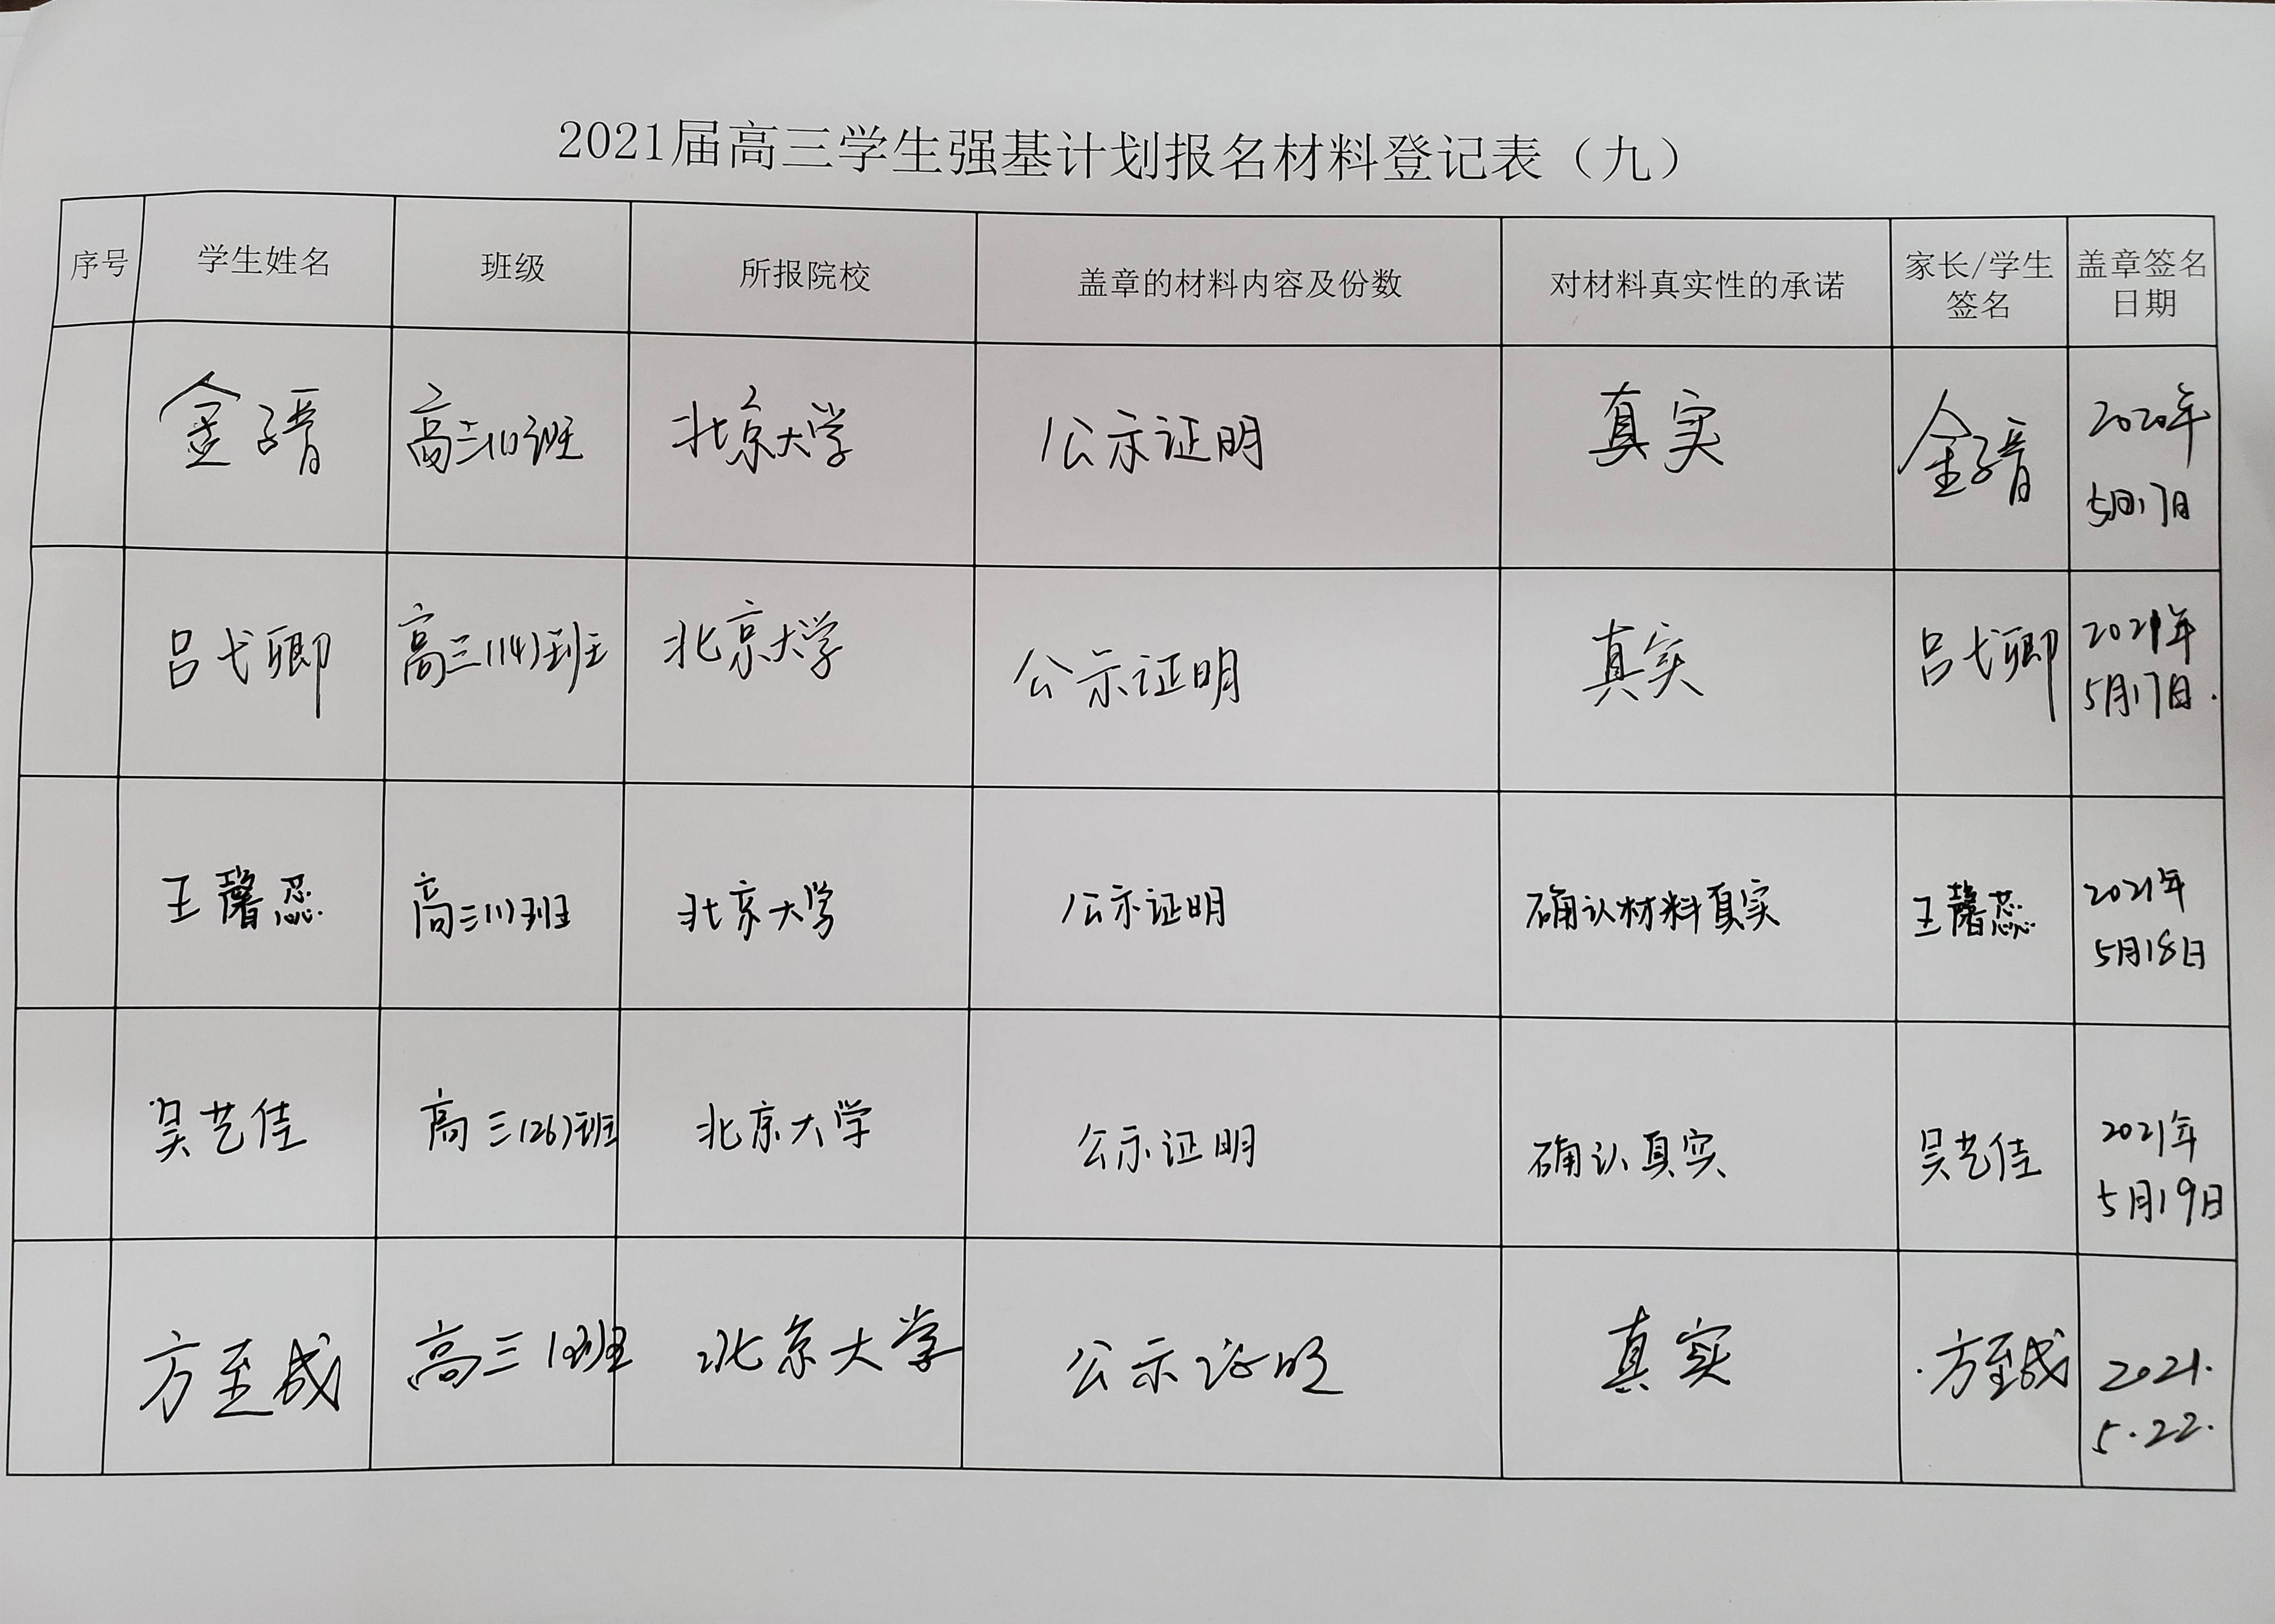 2021届高三学生强基计划报名材料登记表（九）
序号 学生姓名 班级 所报院校 盖章的材料内容及份数 对材料真实性的承诺 家长/学生签名 盖章签名日期
高三10班 北京大学 公示证明 真实 2020年
5月17日
吕弋卿 高三(14)班 北京大学 公示证明 真实 吕弋卿 2021年
5月17日.
王馨蕊 高三(1)班 北京大学 公示证明 确认材料真实 王馨蕊 2021年
5月18日
吴艺佳 高三(26)班 北京大学 公示证明 确认真实 吴艺佳 2021年
5月19日
方至成 高三 北京大学 公示证明 真实 方至成 2021.
5.22.